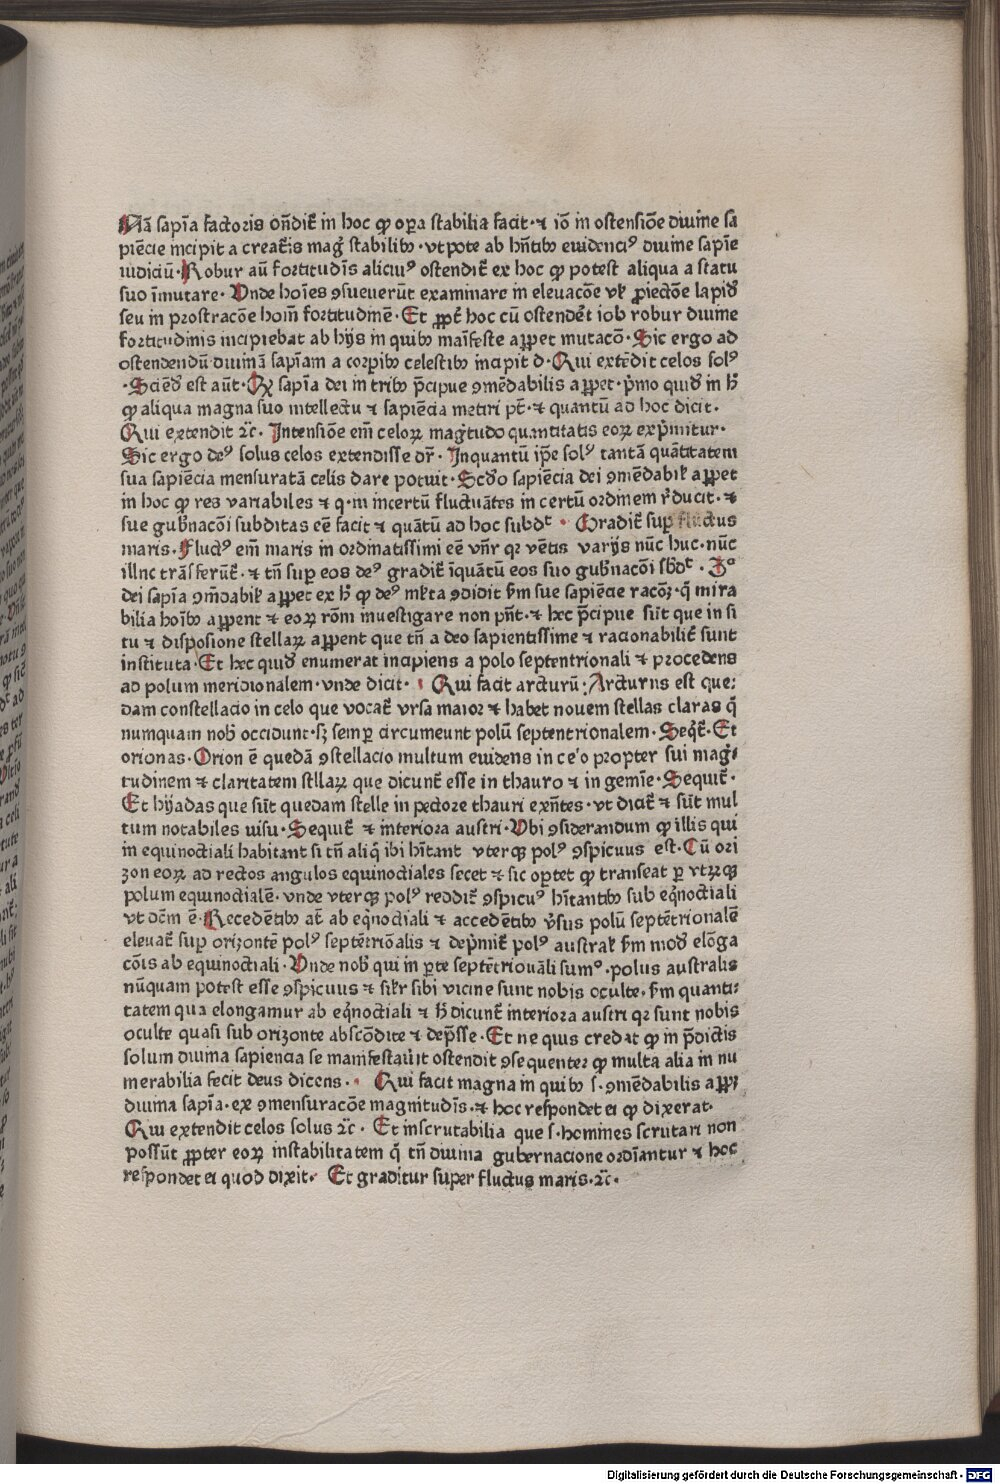 Nā sapīa factoris on̄dit᷑ in hoc ꝙ oꝑa stabilia facit·⁊ iō in ostensiōe diuine sa
piēcie incipit a creat᷑is mag̕ stabilibꝫ·vtpote ab hn̄tibꝫ euidenciꝰ diuine sapīe
iudiciū·Robur aū fortitudīs aliciuiꝰ ostendit᷑ ex hoc ꝙ potest aliqua a statu
suo īmutare·Vnde hoīes ꝯsueuerūt examinare in eleuacōe vl̕ ꝓiectōe lapid̕
seu in prostracōe hoīm fortitudinē·Et ꝓpt̕ hoc cū ostendēt iob robur diuine
fortitudinis incipiebat ab hijs in quibꝫ māifeste aꝑpet mutacō·Sic ergo ad
ostendendū diuinā sapīam a corpibꝫ celestibꝫ incipit d·Qui extēdit celos solꝰ
·Sciēd̕ est aūt·Qꝫ sapīa dei in tribꝫ p̄cipue ꝯmēdabilis aꝑpet·p̄mo quid̕ in h̕
ꝙ aliqua magna suo intellectu ⁊ sapiēcia metiri pt̄·⁊ quantū ad hoc dicit·
Qui extendit ⁊c̄· Intensiōe em̄ celoꝝ mag̕tudo quantitatis eoꝝ exp̄mitur·
Sic ergo deꝰ solus celos extendisse dr̄· Inquantū ip̄e solꝰ tantā quātitatem
sua sapiēcia mensuratā celis dare potuit·Scd̕o sapiēcia dei ꝯmēdabil̕ aꝑpet
in hoc ꝙ res variabiles ⁊ q·m incertū fluctuātes in certū ordinem r̕ducit·⁊
sue gub̕nacōi subditas eē facit ⁊ quātū ad hoc subdᵗ · Gradit᷑ suꝑ fluctus
maris·Fluctꝰ em̄ maris in ordinatissimi eē vn̄r qꝛ vētis varijs nūc huc·nūc
illnc trāsferūt᷑·⁊ tn̄ suꝑ eos deꝰ gradit᷑ īquātū eos suo gub̕nacōi sb̕dᵗ·3ᵃ
dei sapīa ꝯm̄dabil̕ aꝑpet ex h̕ ꝙ deꝰ ml̕ta ꝯdidit fm̄ sue sapiēcie racōꝫ·q̄ mira
bilia hoībꝫ aꝑpent ⁊ eoꝝ rōm inuestigare non pn̄t·⁊ hec p̄cipue sūt que in si
tu ⁊ disposione stellaꝝ aꝑpent que tn̄ a deo sapientissime ⁊ racionabilit᷑ sunt
instituta·Et hec quid̕ enumerat incipiens a polo septentrionali ⁊ procedens
ad polum meridionalem·vnde dicit· Qui facit arcturū·Arcturns est que⸗
dam constellacio in celo que vocat᷑ vrsa maior ⁊ habet nouem stellas claras q̄
numquam nob̕ occidunt·sꝫ semꝑ circumeunt polū septentrionalem·Seqt᷑·Et
orionas·Orion ē quedā ꝯstellacio multum euidens in ce'o propter sui mag̕⸗
tudinem ⁊ claritatem stllaꝝ que dicunt᷑ esse in thauro ⁊ in gemīe·Sequit᷑·
Et hijadas que sūt quedam stelle in pectore thauri exn̄tes·vt dicit᷑ ⁊ sūt mul
tum notabiles uisu·Sequit᷑ ⁊ interiora austri·Vbi ꝯsiderandum ꝙ illis qui
in equinoctiali habitant si tn̄ aliq̕ ibi hītant vterqꝫ polꝰ ꝯspicuus est·Cū ori
zon eoꝝ ad rectos angulos equinoctiales secet ⁊ sic oꝑtet ꝙ transeat ꝑ vtꝝqꝫ
polum equinoctialē·vnde vterqꝫ polꝰ reddit᷑ ꝯspicuꝰ hītantibꝫ sub eq̕noctiali
vt dcm̄ ē·Recedētibꝫ at̄ ab eq̕noctiali ⁊ accedētibꝫ v̕sus polū septētrionalē
eleuat᷑ suꝑ orizontē polꝰ septētriōalis ⁊ dep̄mit᷑ polꝰ austral̕ fm̄ mod̕ elōga
cōis ab equinoctiali·Vnde nob̕ qui in ꝑte septētriouāli sumꝰ·polus australis
nūquam potest esse ꝯspicuus ⁊ sil̕r sibi vicine sunt nobis oculte·fm̄ quanti⸗
tatem qua elongamur ab eq̕noctiali ⁊ h̕ dicunt᷑ interiora austri qꝛ sunt nobis
oculte quasi sub orizonte abscōdite ⁊ dep̄sse·Et ne quis credat ꝙ in p̄dictis
solum diuina sapiencia se manifestau̕it ostendit ꝯsequenter ꝙ multa alia in nu
merabilia fecit deus dicens· Qui facit magna in quibꝫ s·ꝯmēdabilis aꝑpꝫ
diuina sapīa·ex ꝯmensuracōe magnitudīs·⁊ hoc respondet ei ꝙ dixerat·
Qui extendit celos solus ⁊c̄· Et inscrutabilia que s·homines scrutari non
possūt ꝓpter eoꝝ instabilitatem q̄ tn̄ diuina gubernacione ordīantur ⁊ hoc
respondet ei quod dixit· Et graditur super fluctus maris·⁊c̄·
Digitalisierung gefördert durch die Deutsche Forschungsgemeinschaft · DFG